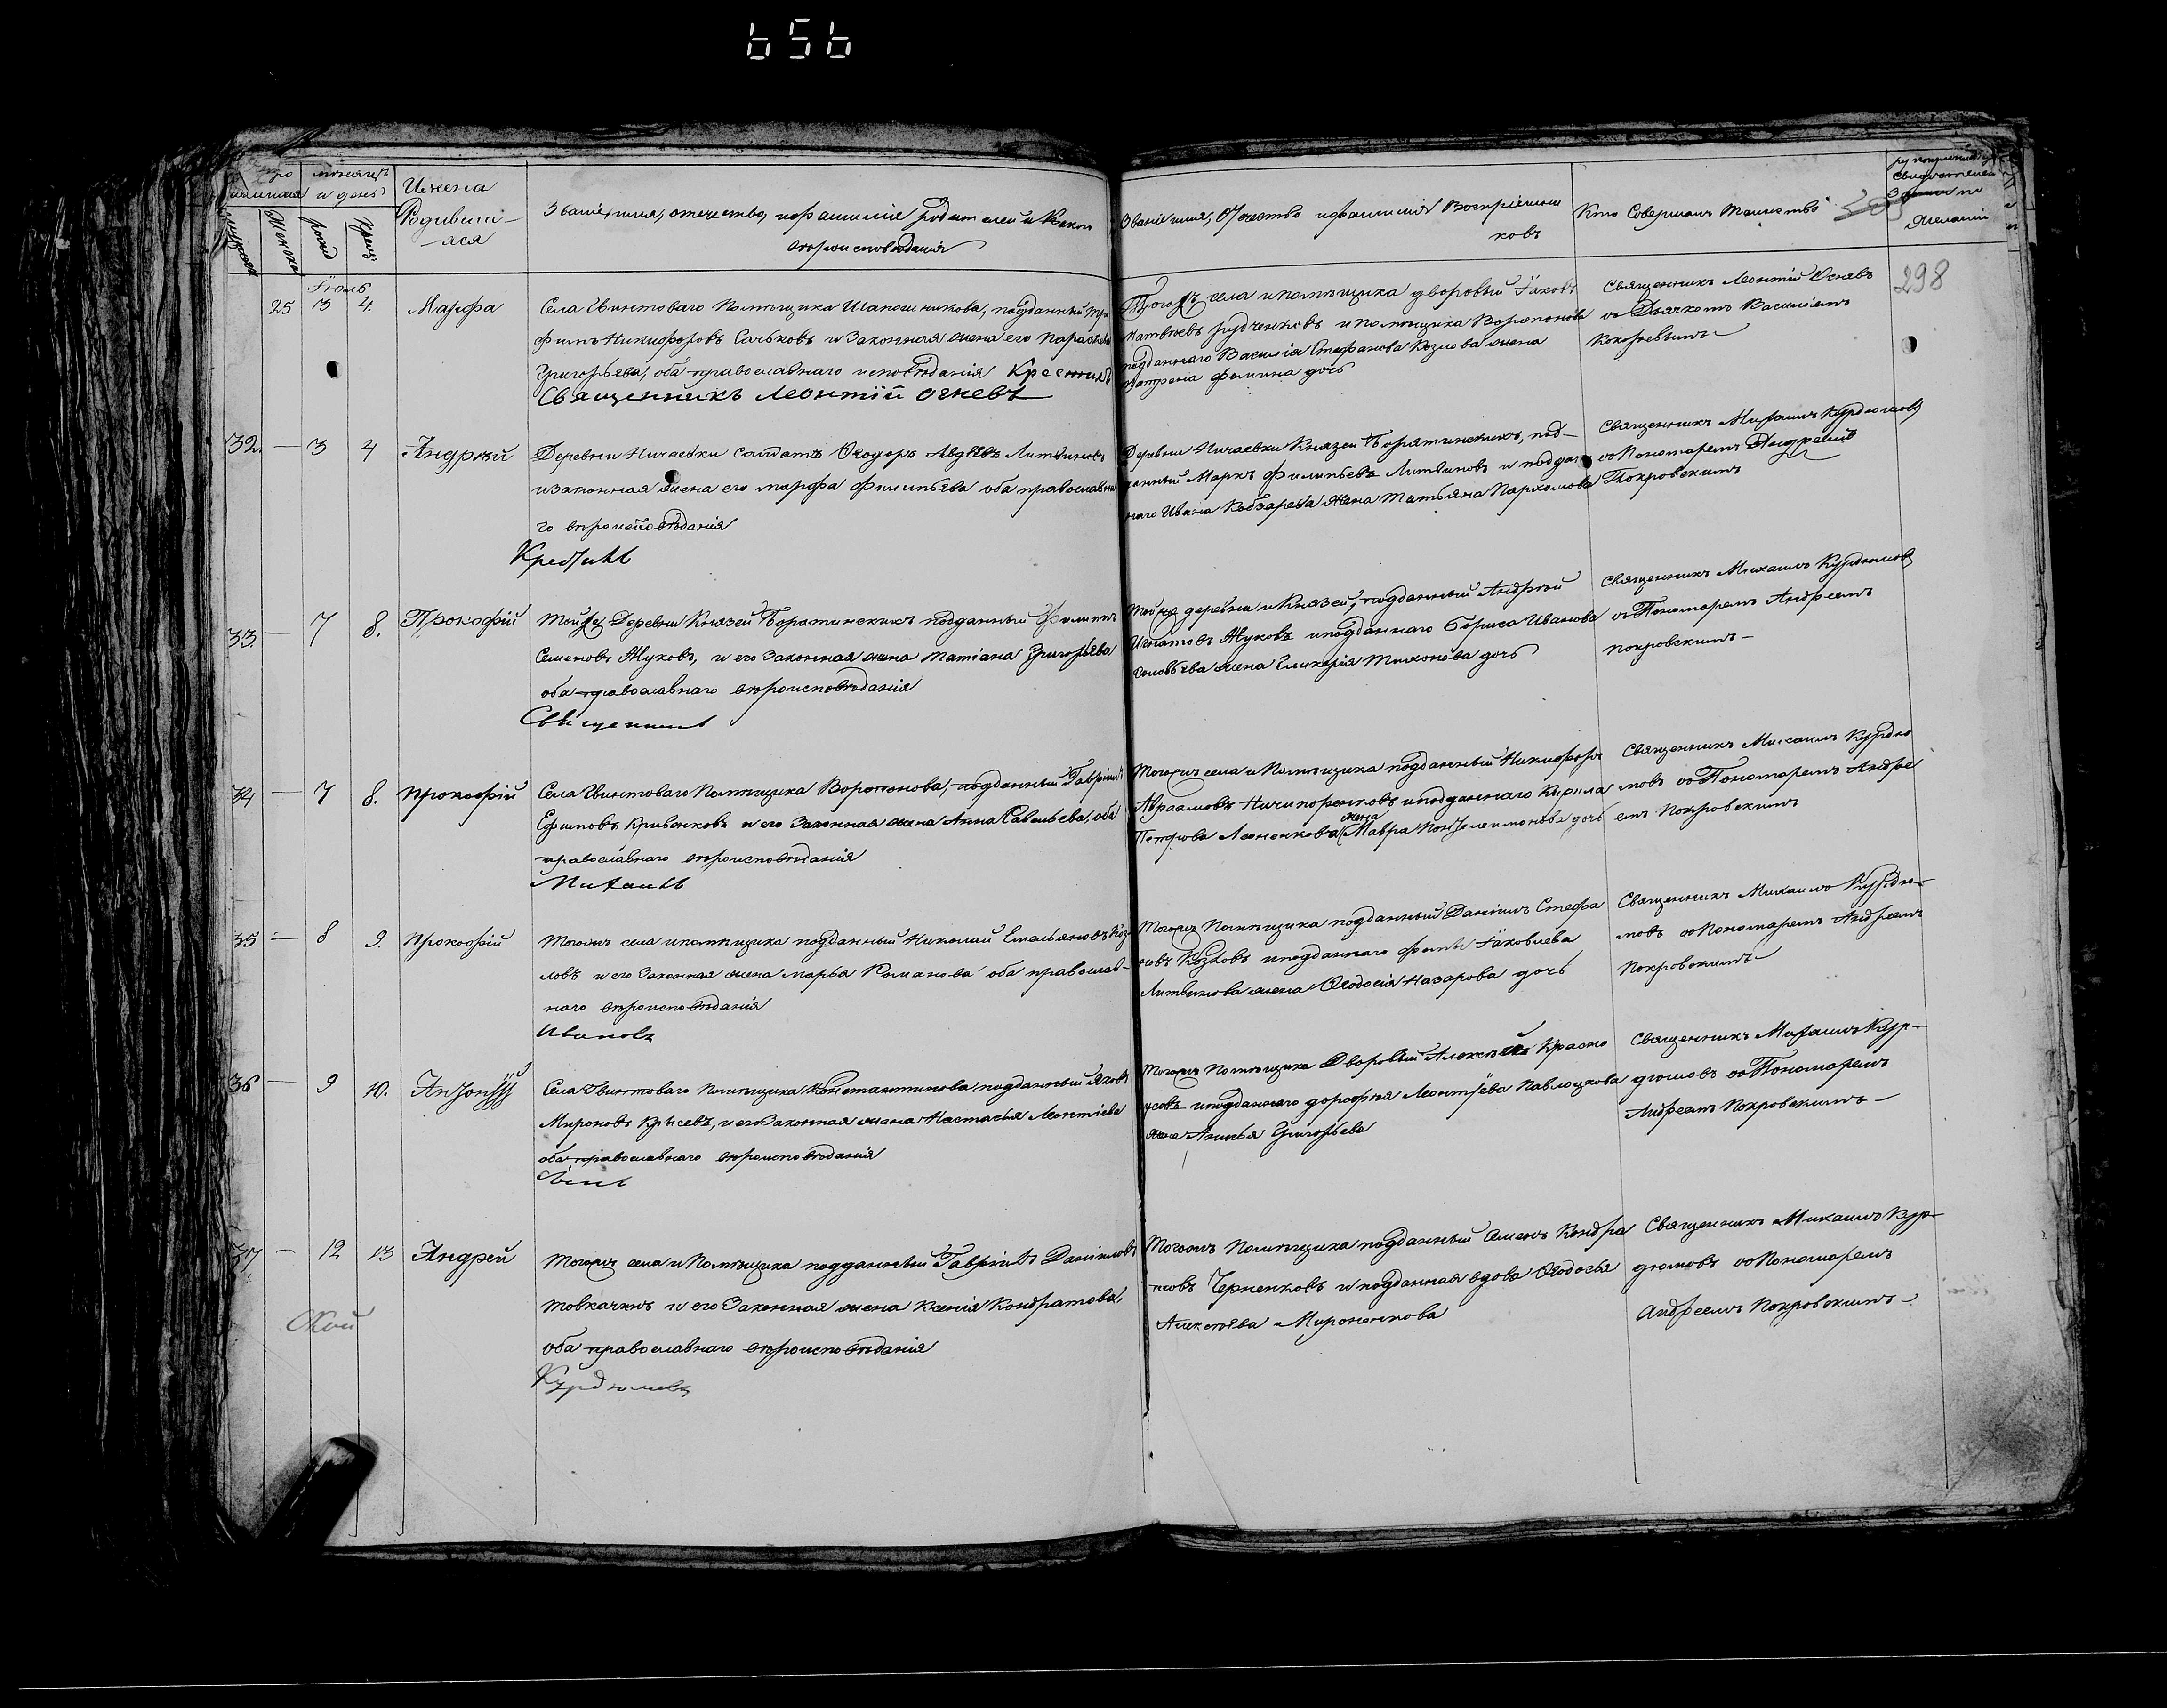 656
мужеска
Женска
рожд
крещ
Имена
Родивши-
-яся
Званіе, имя, отечество, и фамилія родителей и какого
вѣроисповѣданія
Званіе имя, Отчество и фамилія Воспріемни
ковъ
Кто Совершалъ Таинство
298
Іюль
25 3 4. Марфа
Села Гвинтоваго Помѣщика Шапошникова, подданный Тро
фимъ Никифоровъ Сачьковъ и Законная жена его Параскева
Григорьева, оба православнаго исповѣданія Крестилъ
Священникъ Леонтій Огневъ
Тогожъ села и помѣщика дворовый Іаковъ
Матвѣевъ Рудченковъ и помѣщика Воропонова
подданнаго Василія Стефанова Козлова жена
Матрена Фомина дочь
Священникъ Леонтій Огневъ
съ Дьячкомъ Василіемъ
32. — 3 4 Андрей
Деревни Ничаевки солдатъ Ѳеодоръ Авдѣевъ Литвиновъ
и законная жена его Марфа Филипьева оба православна
го вѣроисповѣданія
Крестилъ
Деревни Ничаевки Князей Борятинскихъ, под-
данный Маркъ Филипьевъ Литвиновъ и поддан
наго Ивана Кобзарева жена Татьяна Пархомова
Священникъ Михаилъ Курдюмовъ
со Пономаремъ Андреемъ
Покровскимъ
33. — 7 8. Прокофій
Тойже Деревни Князей Борятинскихъ подданный Филиппъ
Семеновъ Жуковъ, и его Законная жена Татіана Григорьева
оба православнаго вѣроисповѣданія
Священникъ
Тойже деревни и Князей, подданный Андрей
Игнатовъ Жуковъ и подданнаго Бориса Иванова
Соловьева жена Гликерія Тихонова дочь
Священникъ Михаилъ Курдюмовъ
со Пономаремъ Андреемъ
Покровскимъ —
34 — 7 8. Прокофій
Села Гвинтоваго Помѣщика Воропонова, подданный Гавріилъ
Ефимовъ Кривенковъ и его Законная жена Анна Савельева, оба
православнаго вѣроисповѣданія
Михаилъ
Тогожъ села и Помѣщика подданный Никифоръ
Авраамовъ Ничипоренковъ и подданнаго Кирила
жена
Петрова Леоненкова Мавра Пантелеимонова дочь
Священникъ Михаилъ Курдю
мовъ со Пономаремъ Андре
емъ Покровскимъ
35 — 8 9. Прокофій
Тогожъ села и помѣщика подданный Николай Емельяновъ Коз
ловъ и его Законная жена Марья Романова оба православ-
наго вѣроисповѣданія
Ивановъ
Тогожъ Помѣщика подданный Даніилъ Стефа
новъ Козловъ и подданнаго Фомы Іаковлева
Литвинова жена Ѳеодосія Назарова дочь
Священникъ Михаилъ Курдю-
мовъ со Пономаремъ Андреемъ
Покровскимъ
36 — 9 10. Антоній
Села Гвинтоваго Помѣщика Константинова подданный Яковъ
Мироновъ Крысевъ, и его Законная жена Настасья Леонтіева
оба православнаго вѣроисповѣданія
Тогожъ Помѣщика Дворовый Алексѣй Красно
усовъ и подданнаго Дорофея Леонтіева Павлюцкова
жена Агафья Григорьева
Священникъ Михаилъ Кур-
дюмовъ со Пономаремъ
Андреемъ Покровскимъ —
37 — 12 13 Андрей
Тогожъ села и Помѣщика подданный Гавріилъ Даниловъ
Товкачевъ и его Законная жена Ксенія Кондратова
оба православнаго вѣроисповѣданія
Курдюмовъ
Тогожъ Помѣщика подданный Семенъ Кондра
товъ Черненковъ и подданная вдова Ѳеодосья
Алексѣева Мироненкова
Священникъ Михаилъ Кур-
дюмовъ со Пономаремъ
Андреемъ Покровскимъ —